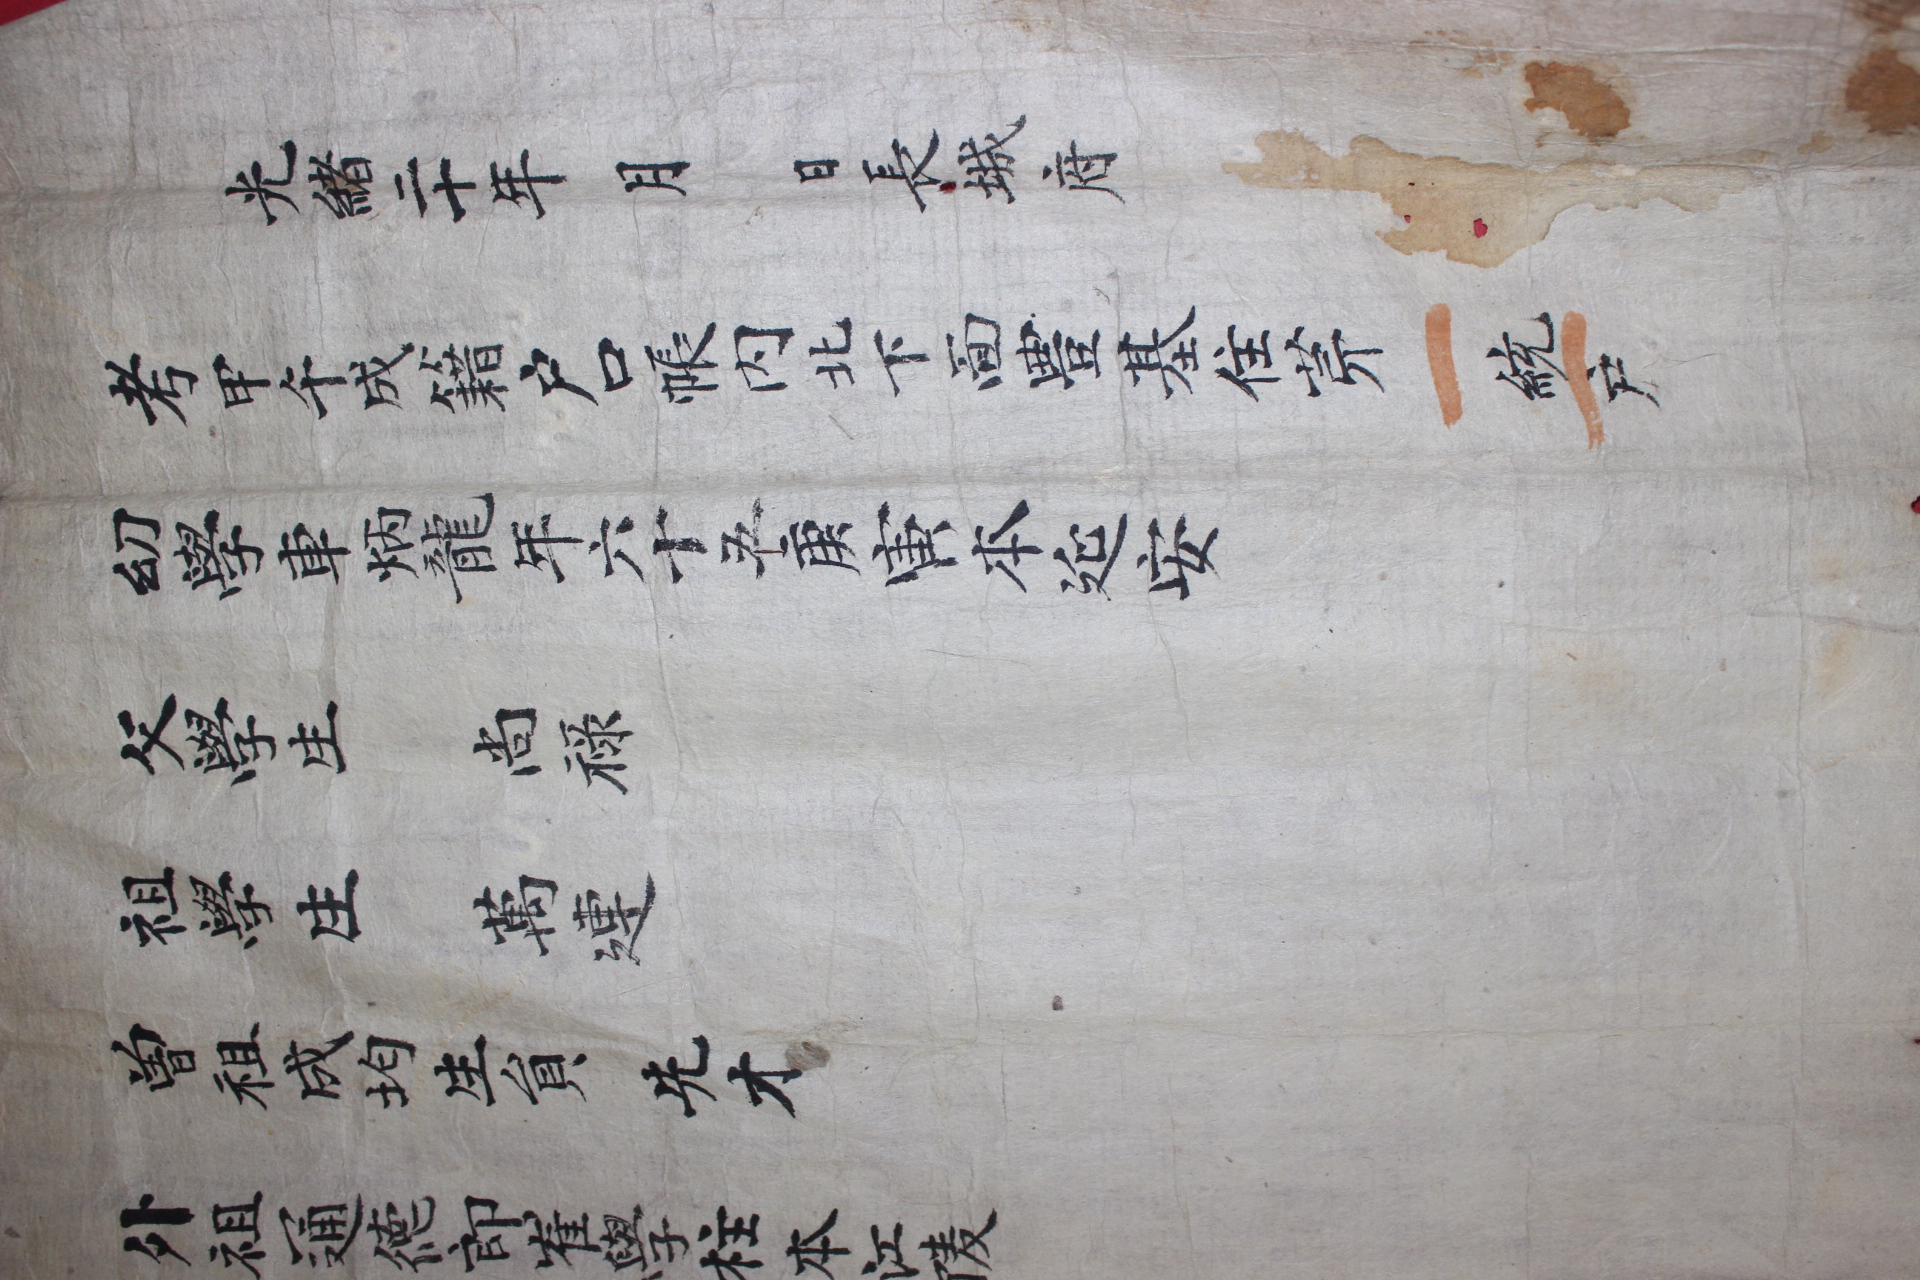 光緒二十年 月 日長城府
考甲午成籍户口帳內北下面豊基住芹 統 户
幼學車炳龍年六十五庚寅本延安
父學生 尚祿
祖學生 萬連
曾祖成均生員 先才
外祖通德郎崔學柱本江陵